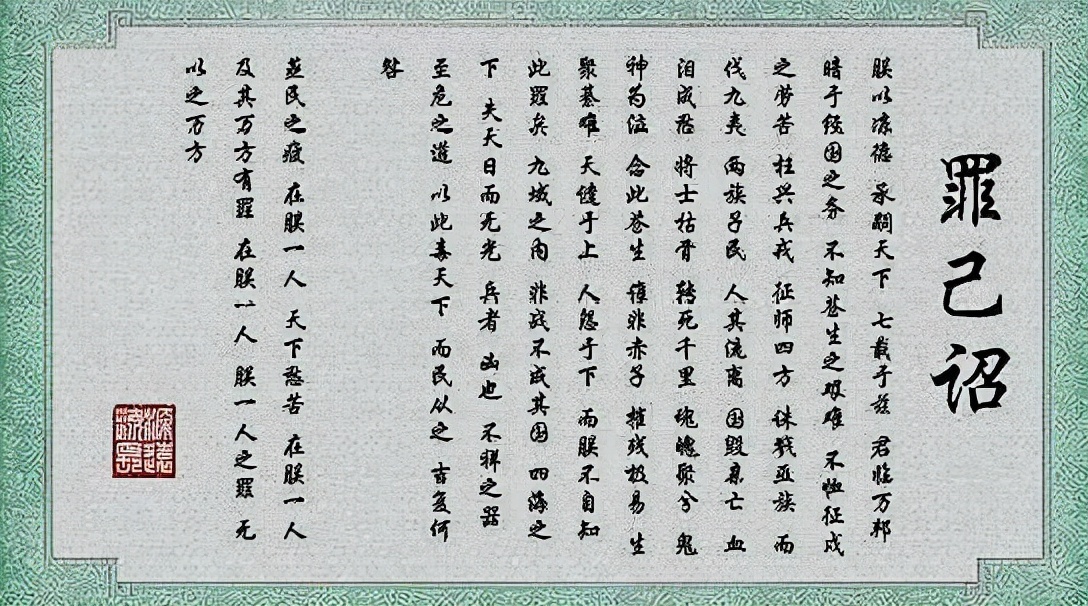 罪己诏
朕以凉德 承嗣天下 七载于兹 君临万邦
暗于经国之务 不知苍生之艰难 不恤征戍
之劳苦 枉兴兵戎 征师四方 诛戮亚族 而
伐九夷 两族子民 人其流离 国毁身亡 血
泪成君 将士枯骨 转死千里 魂魄聚兮 鬼
神为泣 念此苍生 谁非赤子 摧残极易 生
聚綦难 天谴于上 人怨于下 而朕不自知
此罪矣 九域之内 非战不成其国 四海之
下 失天日而无光 兵者 凶也 不祥之器
至危之道 以此毒天下 而民从之 吉复何
咎
兹民之疲 在朕一人 天下愁苦 在朕一人
及其万方有罪 在朕一人 朕一人之罪 无
以之万方